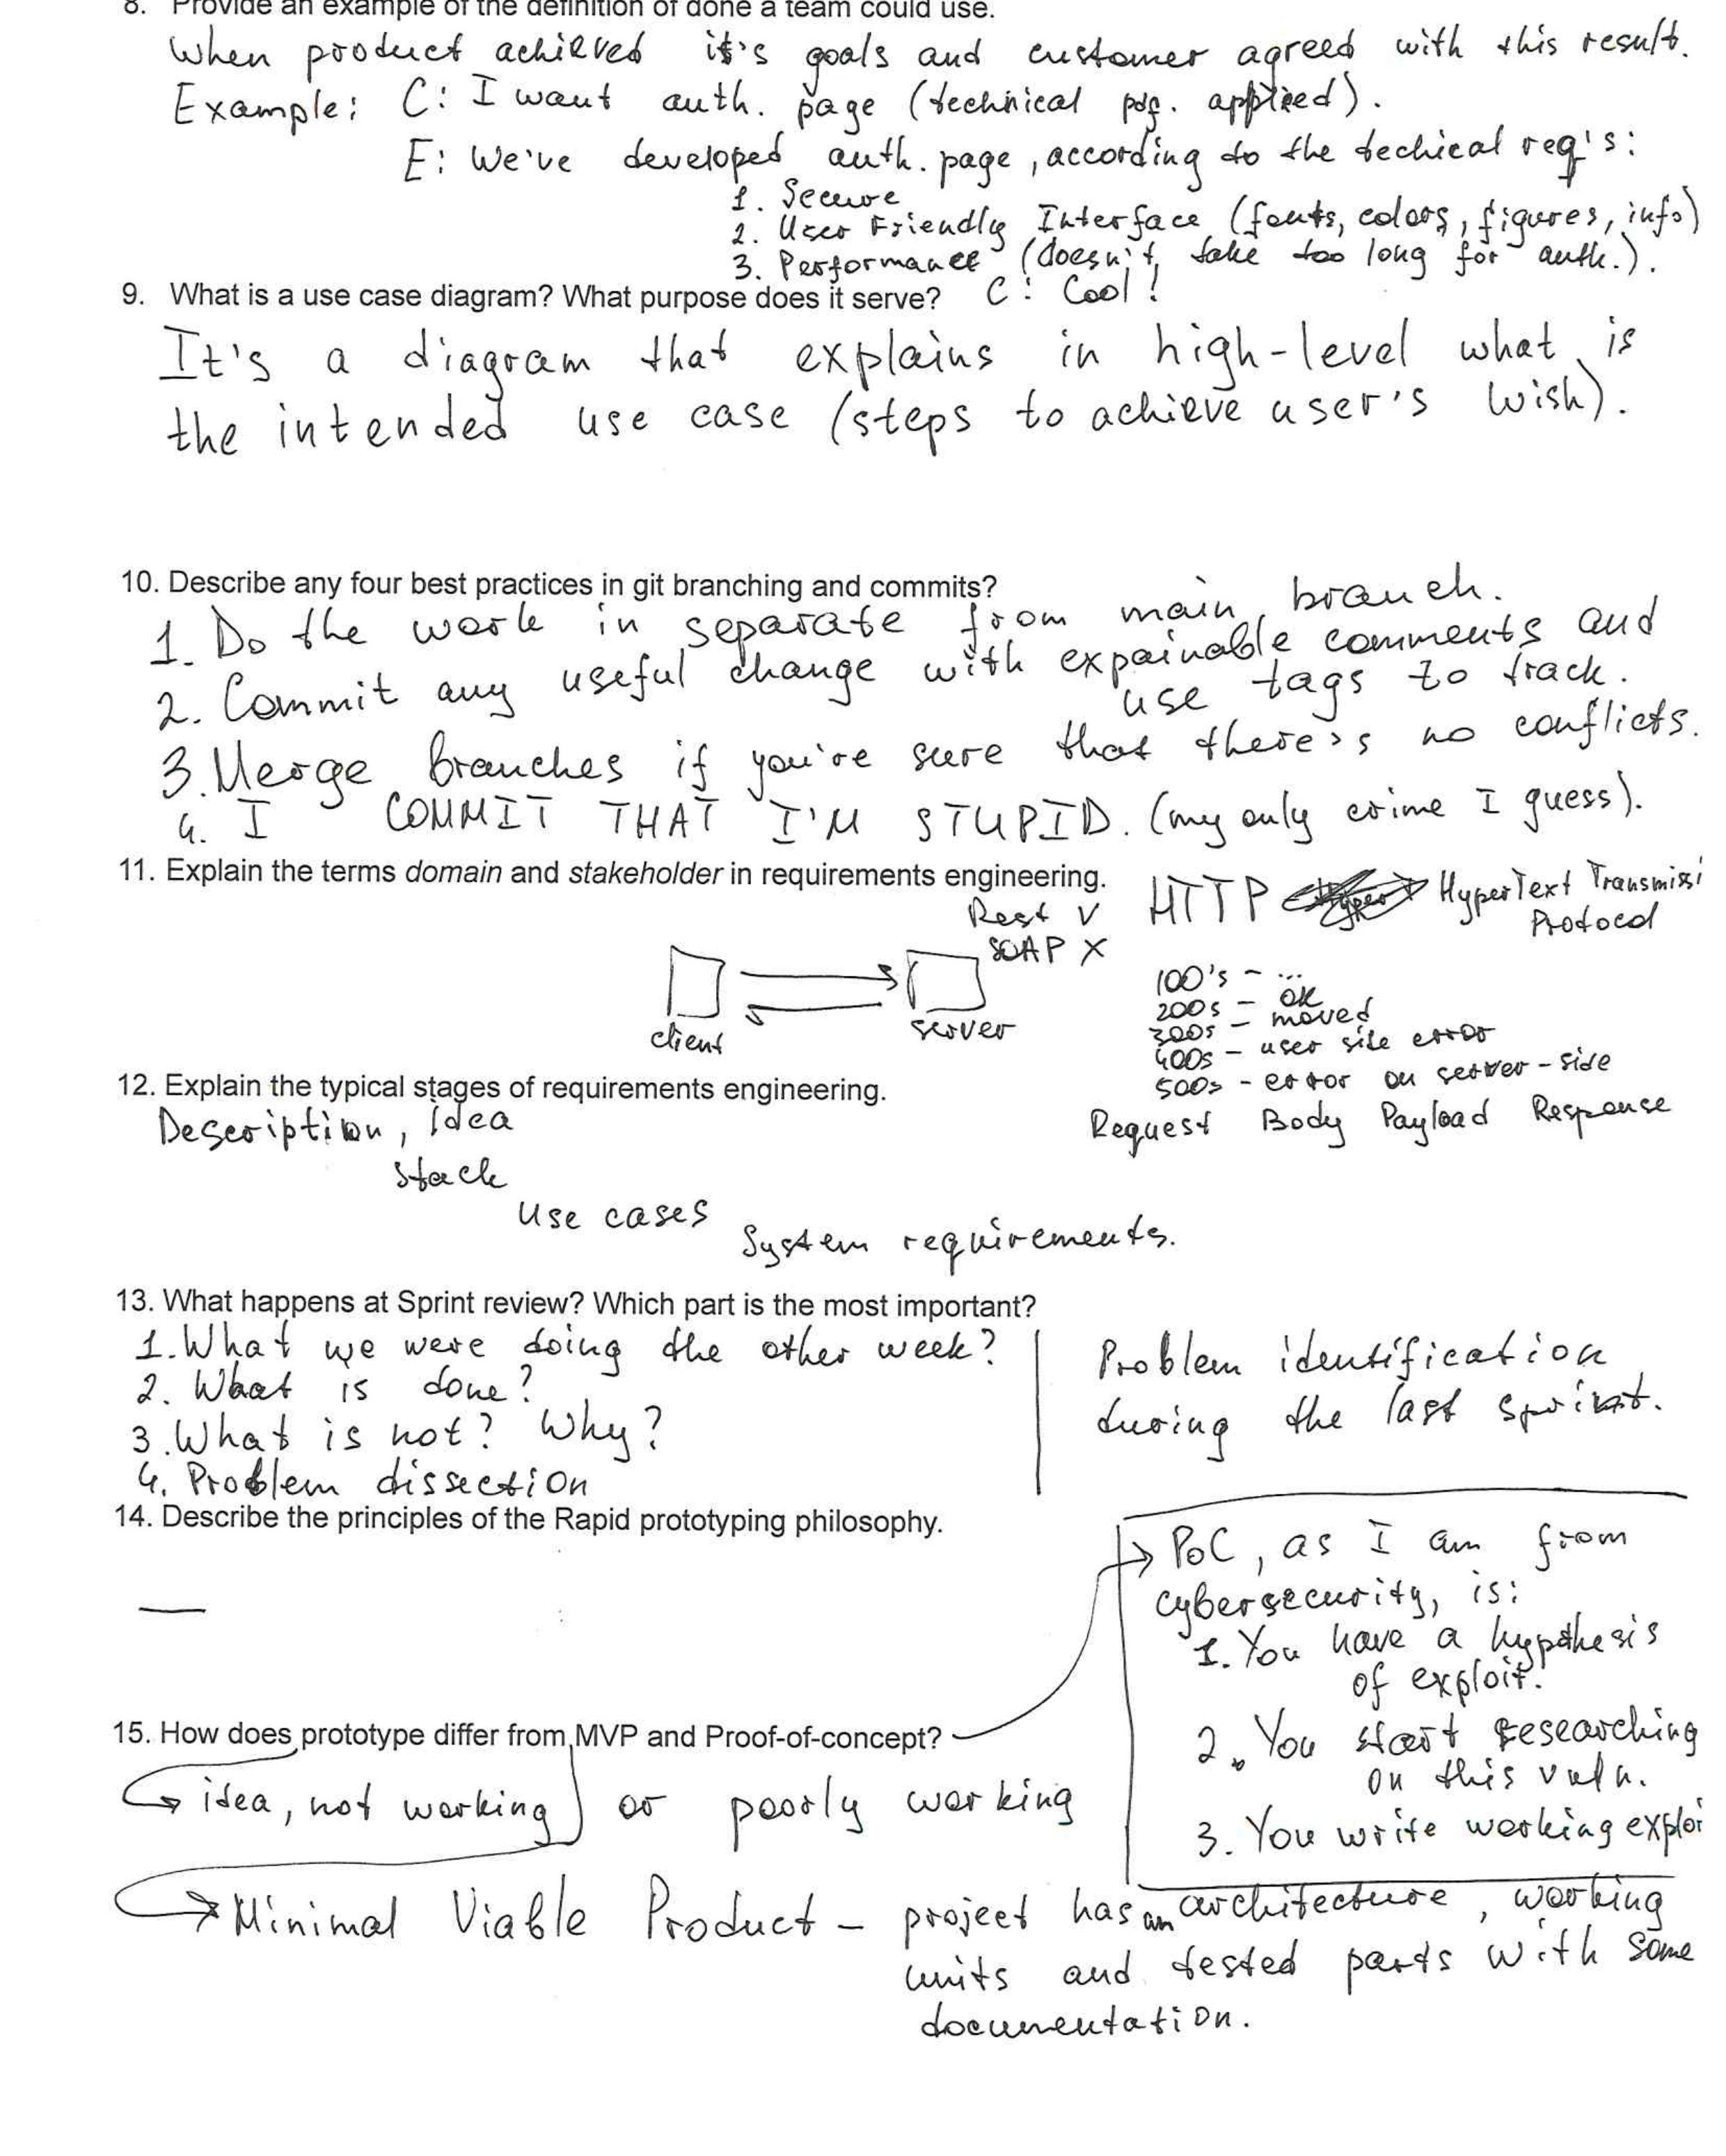 8. Provide an example of the definition of done a team could use.
When product achieved it's goals and customer agreed with this result.
Example: C: I want auth. page (technical pdf. applied).
E: We've developed auth. page, according to the techical req's:
1. Secure
2. User Friendly Interface (fonts, colors, figures, info)
3. Performance (doesn't take too long for auth.).
C: Cool!
9. What is a use case diagram? What purpose does it serve?
It's a diagram that explains in high-level what is
the intended use case (steps to achieve user's wish).
10. Describe any four best practices in git branching and commits?
1. Do the work in separate from main branch.
2. Commit any useful change with expainable comments and
use tags to track.
3. Merge branches if you're sure that there's no conflicts.
4. I COMMIT THAT I'M STUPID. (my only crime I guess).
11. Explain the terms domain and stakeholder in requirements engineering.
Rest V
SOAP X
HTTP HyperText Transmissi
Protocol
client
server
100's - ...
200s - OK
300s - moved
400s - user side error
500s - error on server-side
Request Body Payload Response
12. Explain the typical stages of requirements engineering.
Description, Idea
stack
Use cases
System requirements.
13. What happens at Sprint review? Which part is the most important?
1. What we were doing the other week?
2. What is done?
3. What is not? Why?
4. Problem dissection
Problem identification
during the last sprint.
14. Describe the principles of the Rapid prototyping philosophy.
—
15. How does prototype differ from MVP and Proof-of-concept?
idea, not working or poorly working
PoC, as I am from
cybersecurity, is:
1. You have a hypothesis
of exploit.
2. You start researching
on this vuln.
3. You write working exploi
Minimal Viable Product - project has an architecture, working
units and tested parts with some
documentation.